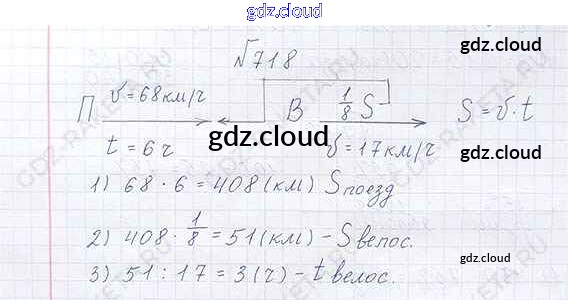 gdz.cloud
№718
gdz.cloud
П V = 68 км/ч В 1/8 S S = V · t
gdz.cloud
t = 6 ч V = 17 км/ч
gdz.cloud
1) 68 · 6 = 408 (км) S поезд
2) 408 · 1/8 = 51 (км) – S велос.
3) 51 : 17 = 3 (ч) – t велос.
gdz.cloud